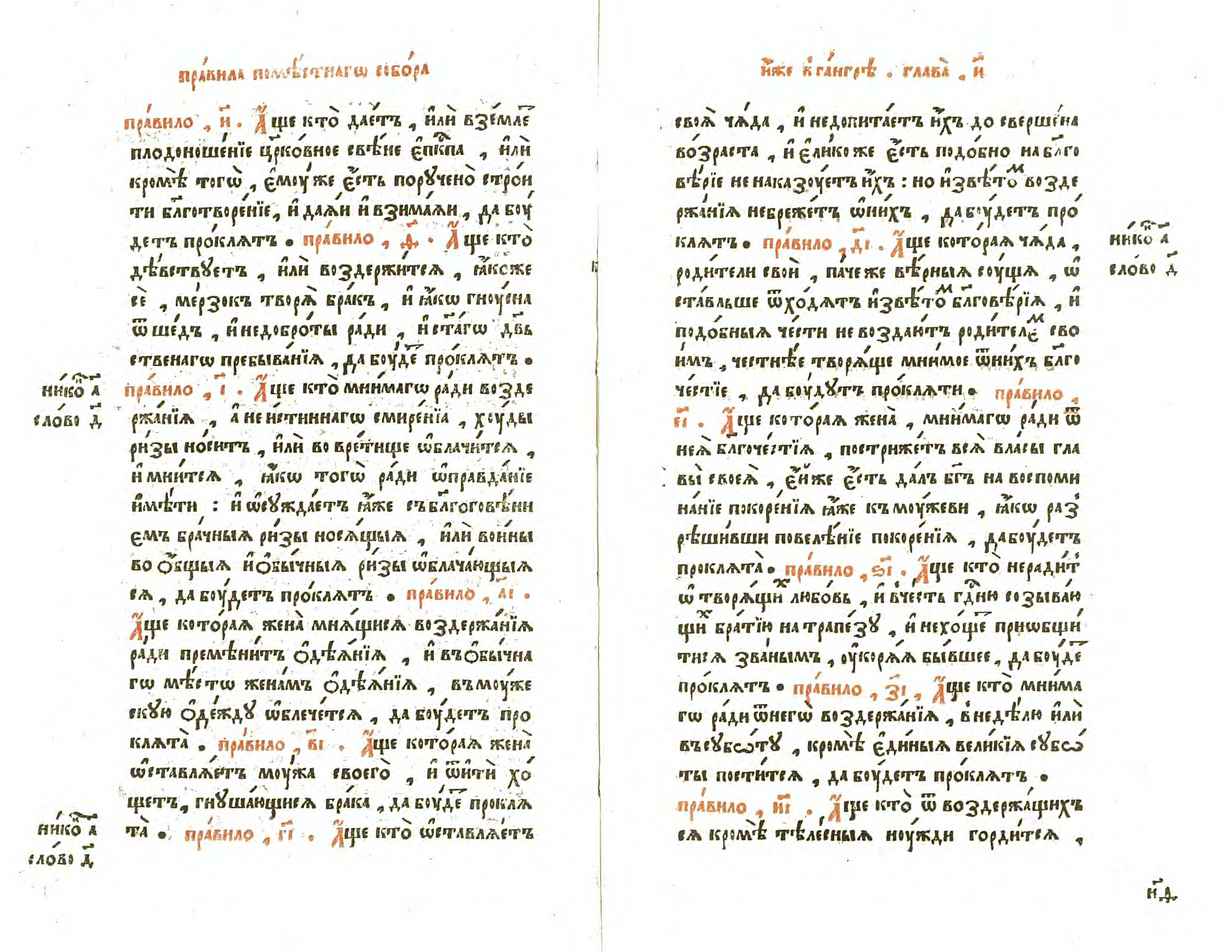 пра́вила помѣ́стнагѡ собо́ра
пра́вило , и҃ . А҆́ще кто̀ дае́тъ , и҆лѝ взе́млетⷭ҇
плодоноше́нїе цр҃ко́вное свѣ́не є҆пⷭ҇кпа , и҆лѝ
кромѣ̀ тогѡ̀ , є҆мꙋ́же є҆́сть порꙋче́но стро́и
ти бл҃готворе́нїе , и҆ даѧ́и и҆ взима́ѧи , да бꙋ́
детъ про́клятъ . пра́вило , ѳ҃ . А҆́ще кто̀
дѣ́вствꙋетъ , и҆лѝ воздержи́тсѧ , ꙗ҆́коже
сѐ , ме́рзокъ творѧ̀ бра́къ , и҆ ꙗ҆́кѡ гнꙋ́сена
ѿше́дъ , и҆ недобро́ты ра́ди , и҆ ст҃а́гѡ дѣ́в
ственагѡ пребыва́нїѧ , да бꙋ́детⷭ҇ про́клѧтъ .
пра́вило , і҃ . А҆́ще кто̀ мни́магѡ ра́ди возде
ржа́нїѧ , а҆ не и҆́стиннагѡ смире́нїа , хꙋды
ри́зы но́ситъ , и҆лѝ во вре́тище ѡ҆блачи́тсѧ ,
и҆ мни́тсѧ , ꙗ҆́кѡ тогѡ̀ ра́ди ѡ҆правда́нїе
и҆мѣ́ти : и҆ ѡ҆сꙋжда́етъ ꙗ҆̀же съ бл҃гоговѣ́ни
емъ бра́чныѧ ри́зы носѧ́щыѧ , и҆лѝ во́ины
во ѻ҆́бщыѧ и҆ ѻ҆бы́чныѧ ри́зы ѡ҆блача́ющыѧ
сѧ , да бꙋ́детъ про́клѧтъ . пра́вило , а҃і .
А҆́ще кото́раѧ жена̀ мнѧ́щисѧ воздержа́нїѧ
ра́ди премѣни́тъ ѻ҆дѣѧ́нїѧ , и҆ въ ѻ҆бы́чна
гѡ мѣ́стѡ жена́мъ ѻ҆дѣѧ́нїѧ , въ мꙋ́же
скꙋю ѻ҆де́ждꙋ ѡ҆блече́тсѧ , да бꙋ́детъ про
клѧта̀ . пра́вило , в҃і . А҆́ще кото́раѧ жена̀
ѡ҆ставлѧ́етъ мꙋ́жа своего̀ , и҆ ѿи́ти хо́
щетъ , гнꙋша́ющисѧ бра́ка , да бꙋ́детⷭ҇ проклѧ
та̀ . пра́вило , г҃і . А҆́ще кто̀ ѡ҆ставлѧ́етъ
нико́нъ а҃
сло́во д҃
нико́нъ а҃
сло́во д҃
и҆́же в̾ га́нгрѣ . глава̀ , и҃
своѧ̀ чѧ́да , и҆ недопита́етъ и҆́хъ до сверше́на
во́зраста , и҆ є҆ли́коже є҆́сть подо́бно на бл҃го
вѣ́рїе не наказꙋ́етъ и҆́хъ : но и҆звѣ́томъ возде
ржа́нїѧ небреже́тъ ѡ҆ ни́хъ , да бꙋ́детъ про́
клѧтъ . пра́вило , д҃і . А҆́ще кото́раѧ чѧ́да ,
роди́тели своѝ , па́че же вѣ́рныѧ сꙋ́щѧ , ѡ҆
ста́вльше ѿхо́дѧтъ и҆звѣ́томъ бл҃говѣ́рїѧ , и҆
подо́бныѧ че́сти не воздаю́тъ роди́телемъ сво
и́мъ , честнѣ́е творѧ́ще мни́мое ѿ ни́хъ бл҃го
че́стїе , да бꙋ́дꙋтъ про́клѧти . пра́вило ,
є҃і . А҆́ще кото́раѧ жена̀ , мни́магѡ ра́ди ѿ
неѧ̀ бл҃гоче́стїѧ , пострижѐтъ всѧ̀ власы̀ гла
вы̀ своеѧ̀ , є҆ѝже є҆́сть да́лъ бг҃ъ на воспоми
на́нїе покоре́нїѧ ꙗ҆́же къ мꙋ́жеви , ꙗ҆́кѡ раз̾
рѣши́вши повелѣ́нїе покоре́нїѧ , да бꙋ́детъ
проклѧта̀ . пра́вило , ѕ҃і . А҆́ще кто̀ неради́т
ѡ҆ творѧ́щих любо́вь , и҆ в̾че́сть гд҇ню созываю́
щих бра́тїю на трапе́зꙋ , и҆ нехо́щетⷭ҇ приѡбщи́
тисѧ зва́нымъ , ᲂу҆корѧ́ѧ бы́вшее , да бꙋ́детⷭ҇
про́клѧтъ . пра́вило , з҃і , А҆́ще кто̀ мни́ма
гѡ ра́ди ѿ него̀ воздержа́нїѧ , в̾ недѣ́лю и҆лѝ
въ сꙋббѡ́тꙋ , кромѣ̀ є҆ди́ныѧ вели́кїѧ сꙋббѡ́
ты пости́тсѧ , да бꙋ́детъ про́клѧтъ .
пра́вило , и҃і . А҆́ще кто̀ ѿ воздержа́щихъ
сѧ кромѣ̀ тѣле́сныѧ нꙋ́жди горди́тсѧ ,
нико́нъ а҃
сло́во д҃
н҃ѳ